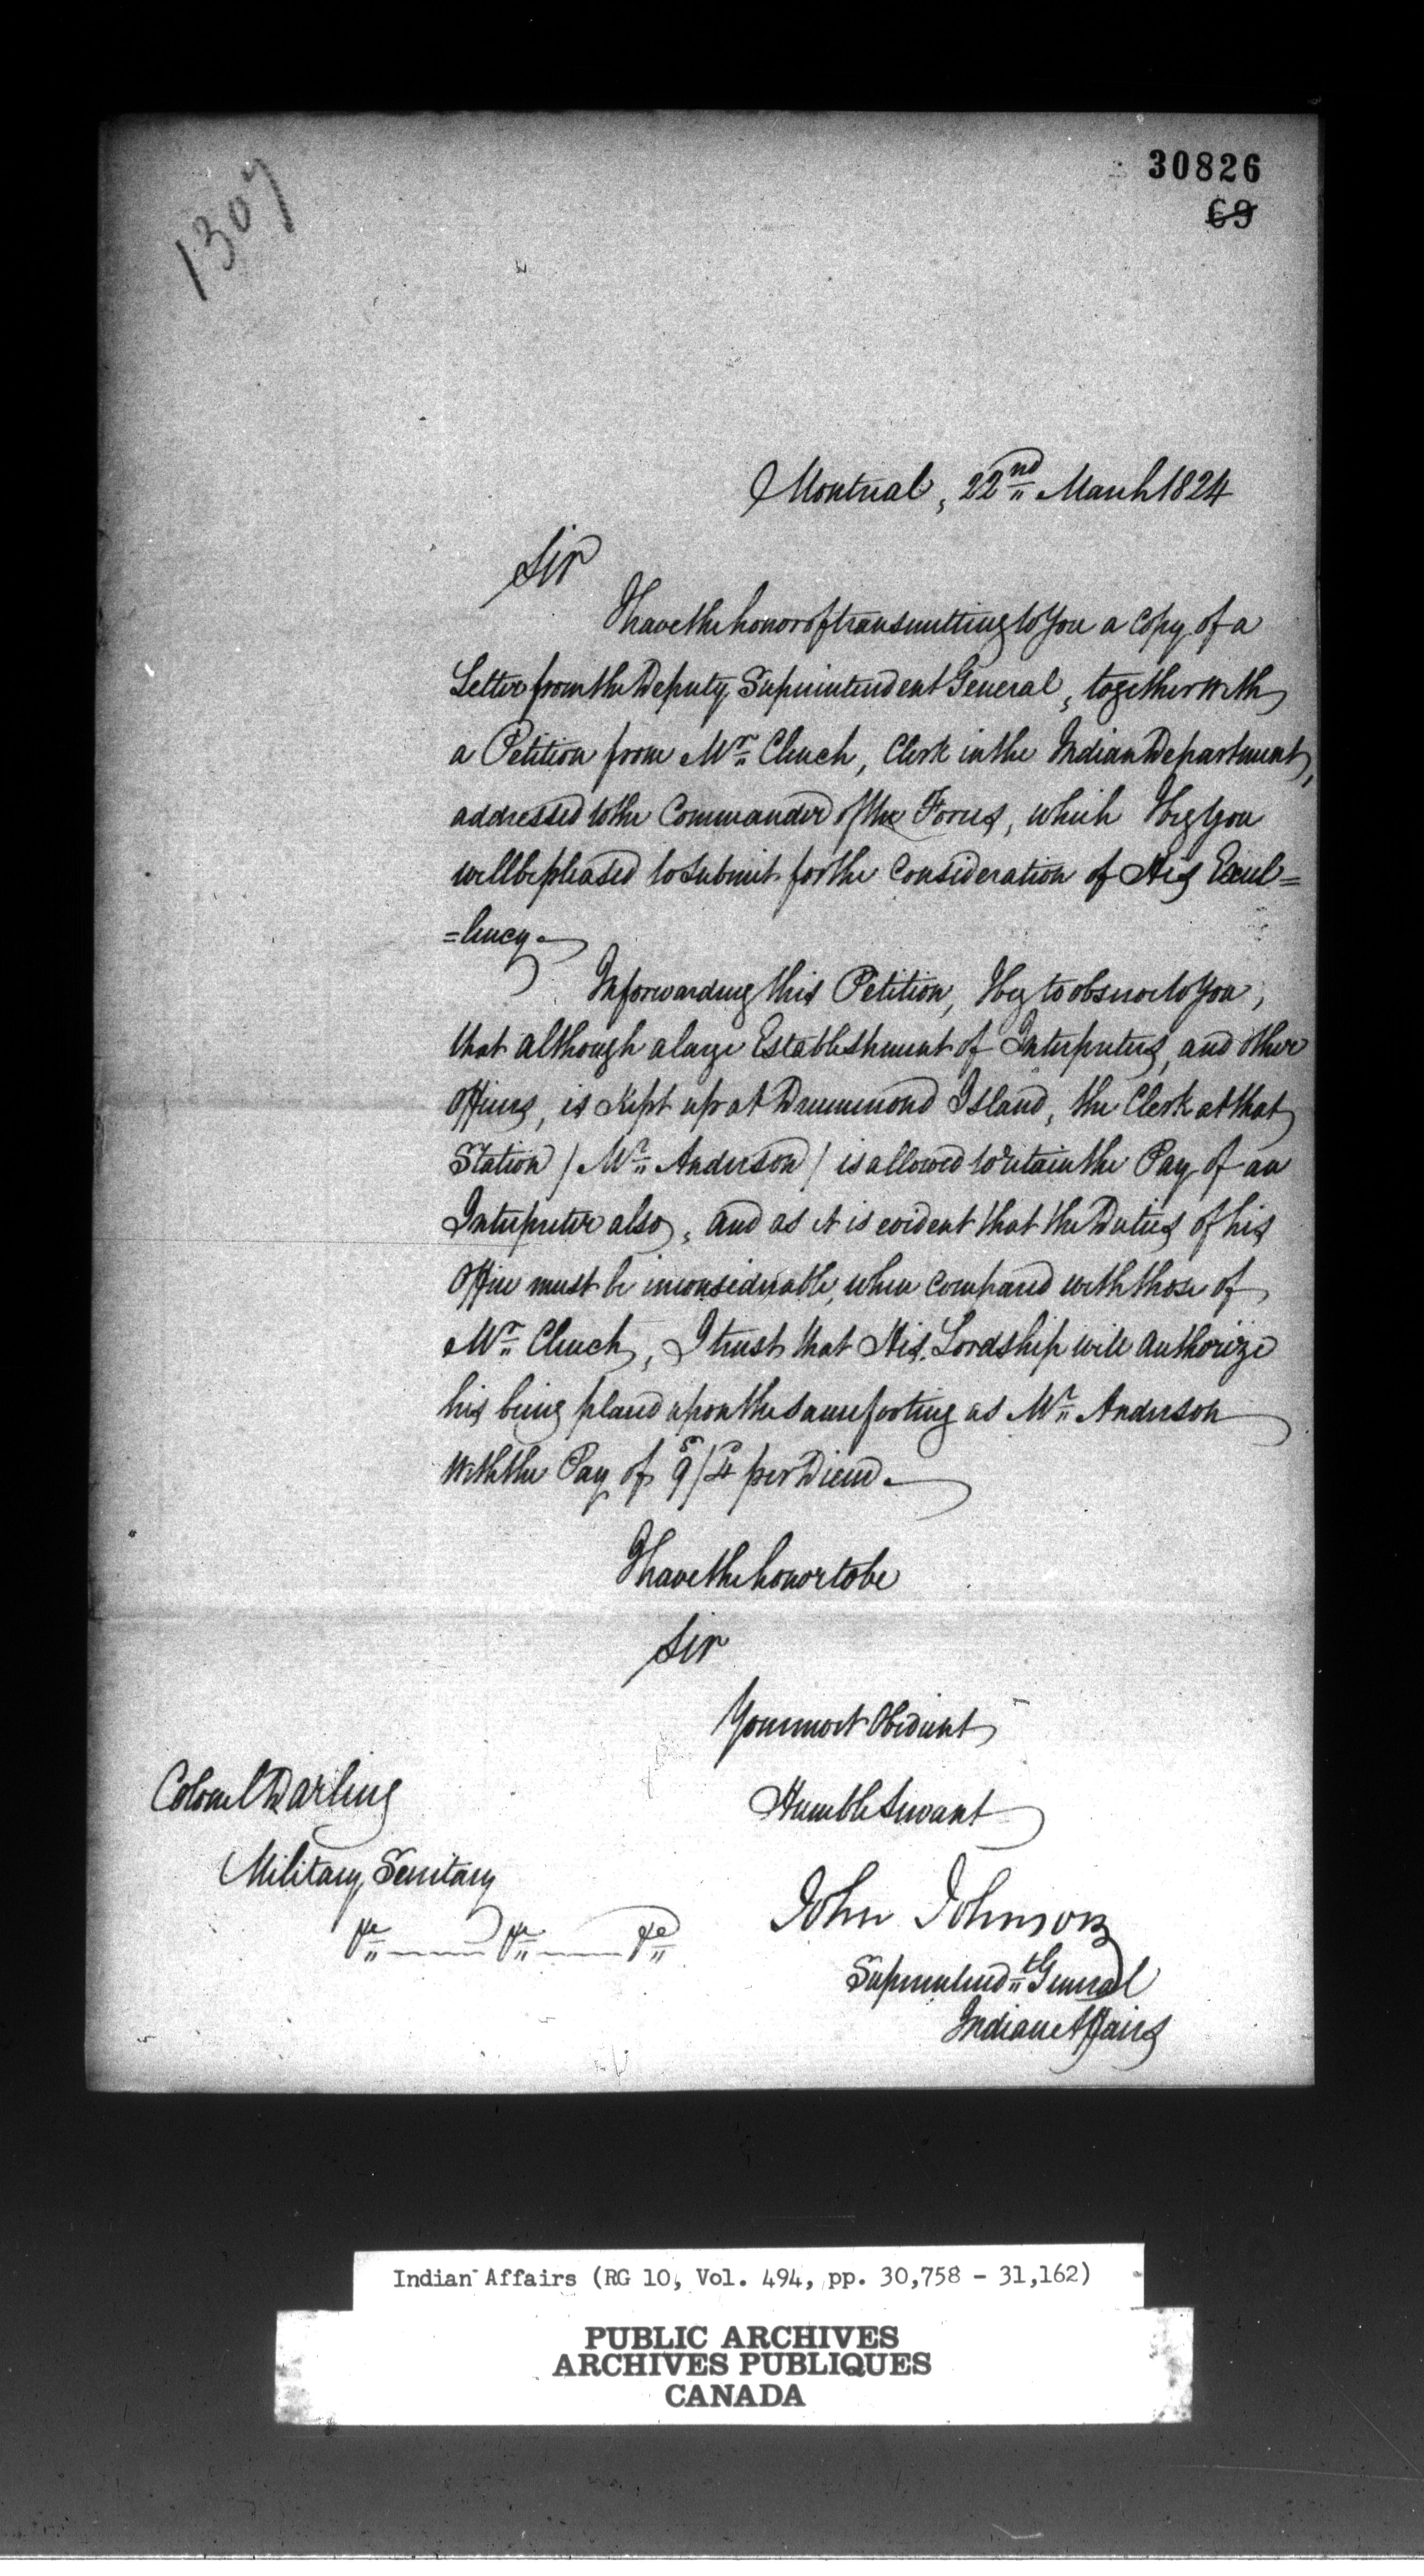 30826
69
1307
Montreal, 22nd March 1824
Sir
I have the honor of transmitting to You a Copy of a
Letter from the Deputy Superintendent General, together with
a Petition from Mr. Clench, Clerk in the Indian Department,
addressed to the Commander of the Forces, which I beg You
will be pleased to submit for the Consideration of His Excel=
=lency.
In forwarding this Petition, I beg to observe to You,
that although a large Establishment of Interpreters, and other
Officers, is Kept up at Drummond Island, the Clerk at that
Station / Mr. Anderson / is allowed to retain the Pay of an
Interpreter also, and as it is evident that the Duties of his
Office must be inconsiderable, when compared with those of
Mr. Clench, I trust that His Lordship will authorize
his being placed upon the same footing as Mr. Anderson
with the Pay of 9/4 per Diem.
I have the honor to be
Sir
Your most Obedient
Humble Servant
John Johnson
Superintendt. General
Indian Affairs
Colonel Darling
Military Secretary
&c. &c. &c.
Indian Affairs (RG 10, Vol. 494, pp. 30,758 - 31,162)
PUBLIC ARCHIVES
ARCHIVES PUBLIQUES
CANADA